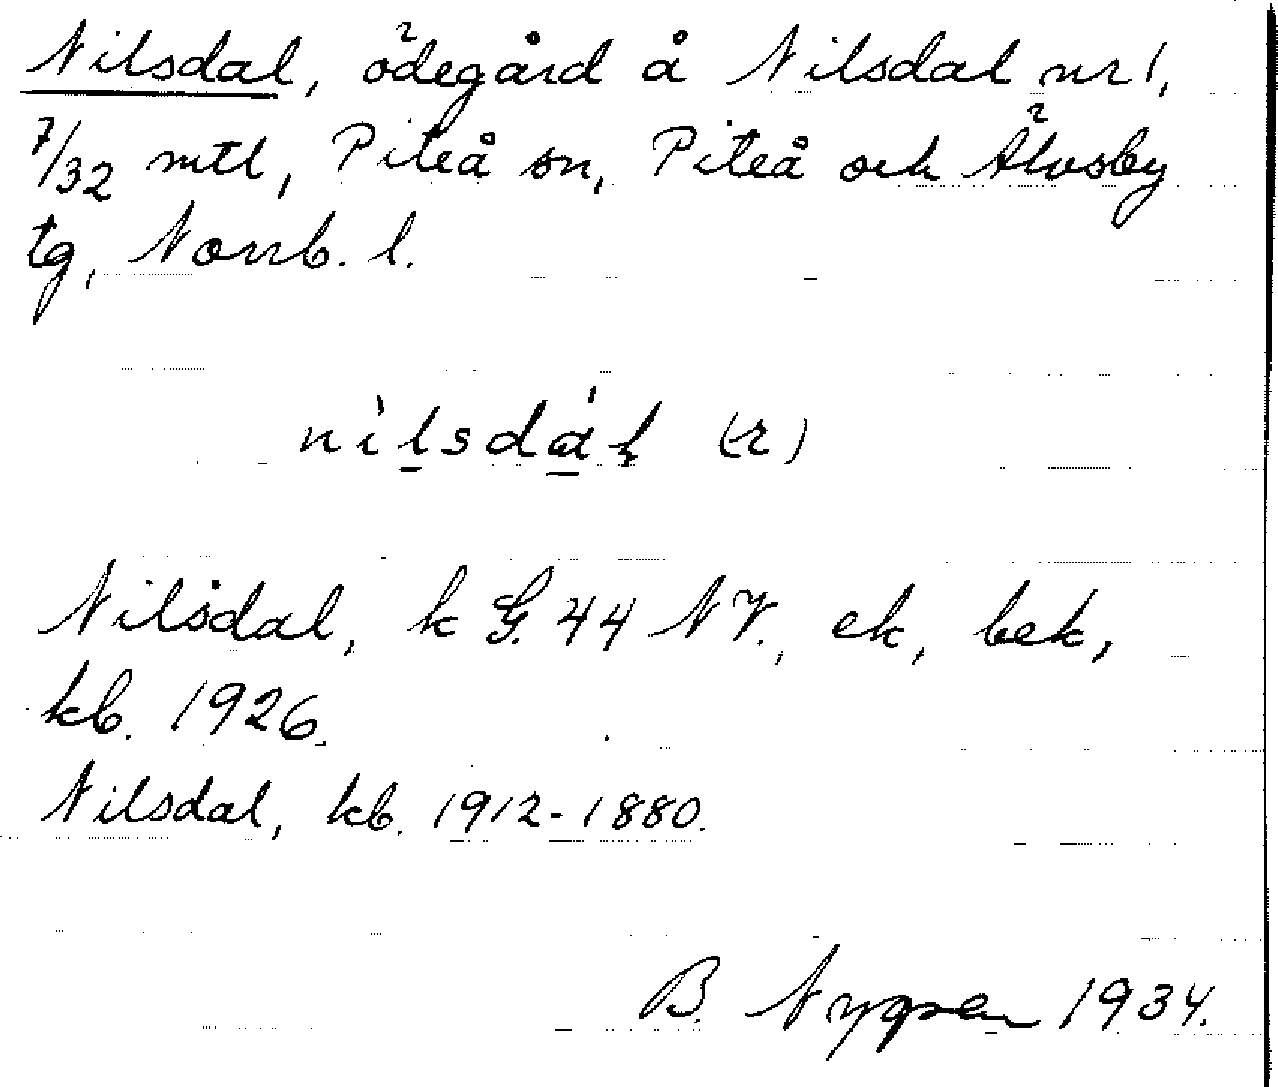 Nilsdal, ödegård å Nilsdal nr 1,
7/32 mtl, Piteå sn, Piteå och Älvsby
tg, Norrb. l.
nìlsdáł (-r)
Nilsdal, k G. 44 NV., ek, bek,
kb. 1926.
Nilsdal, kb. 1912-1880.
B. Nygren 1934.